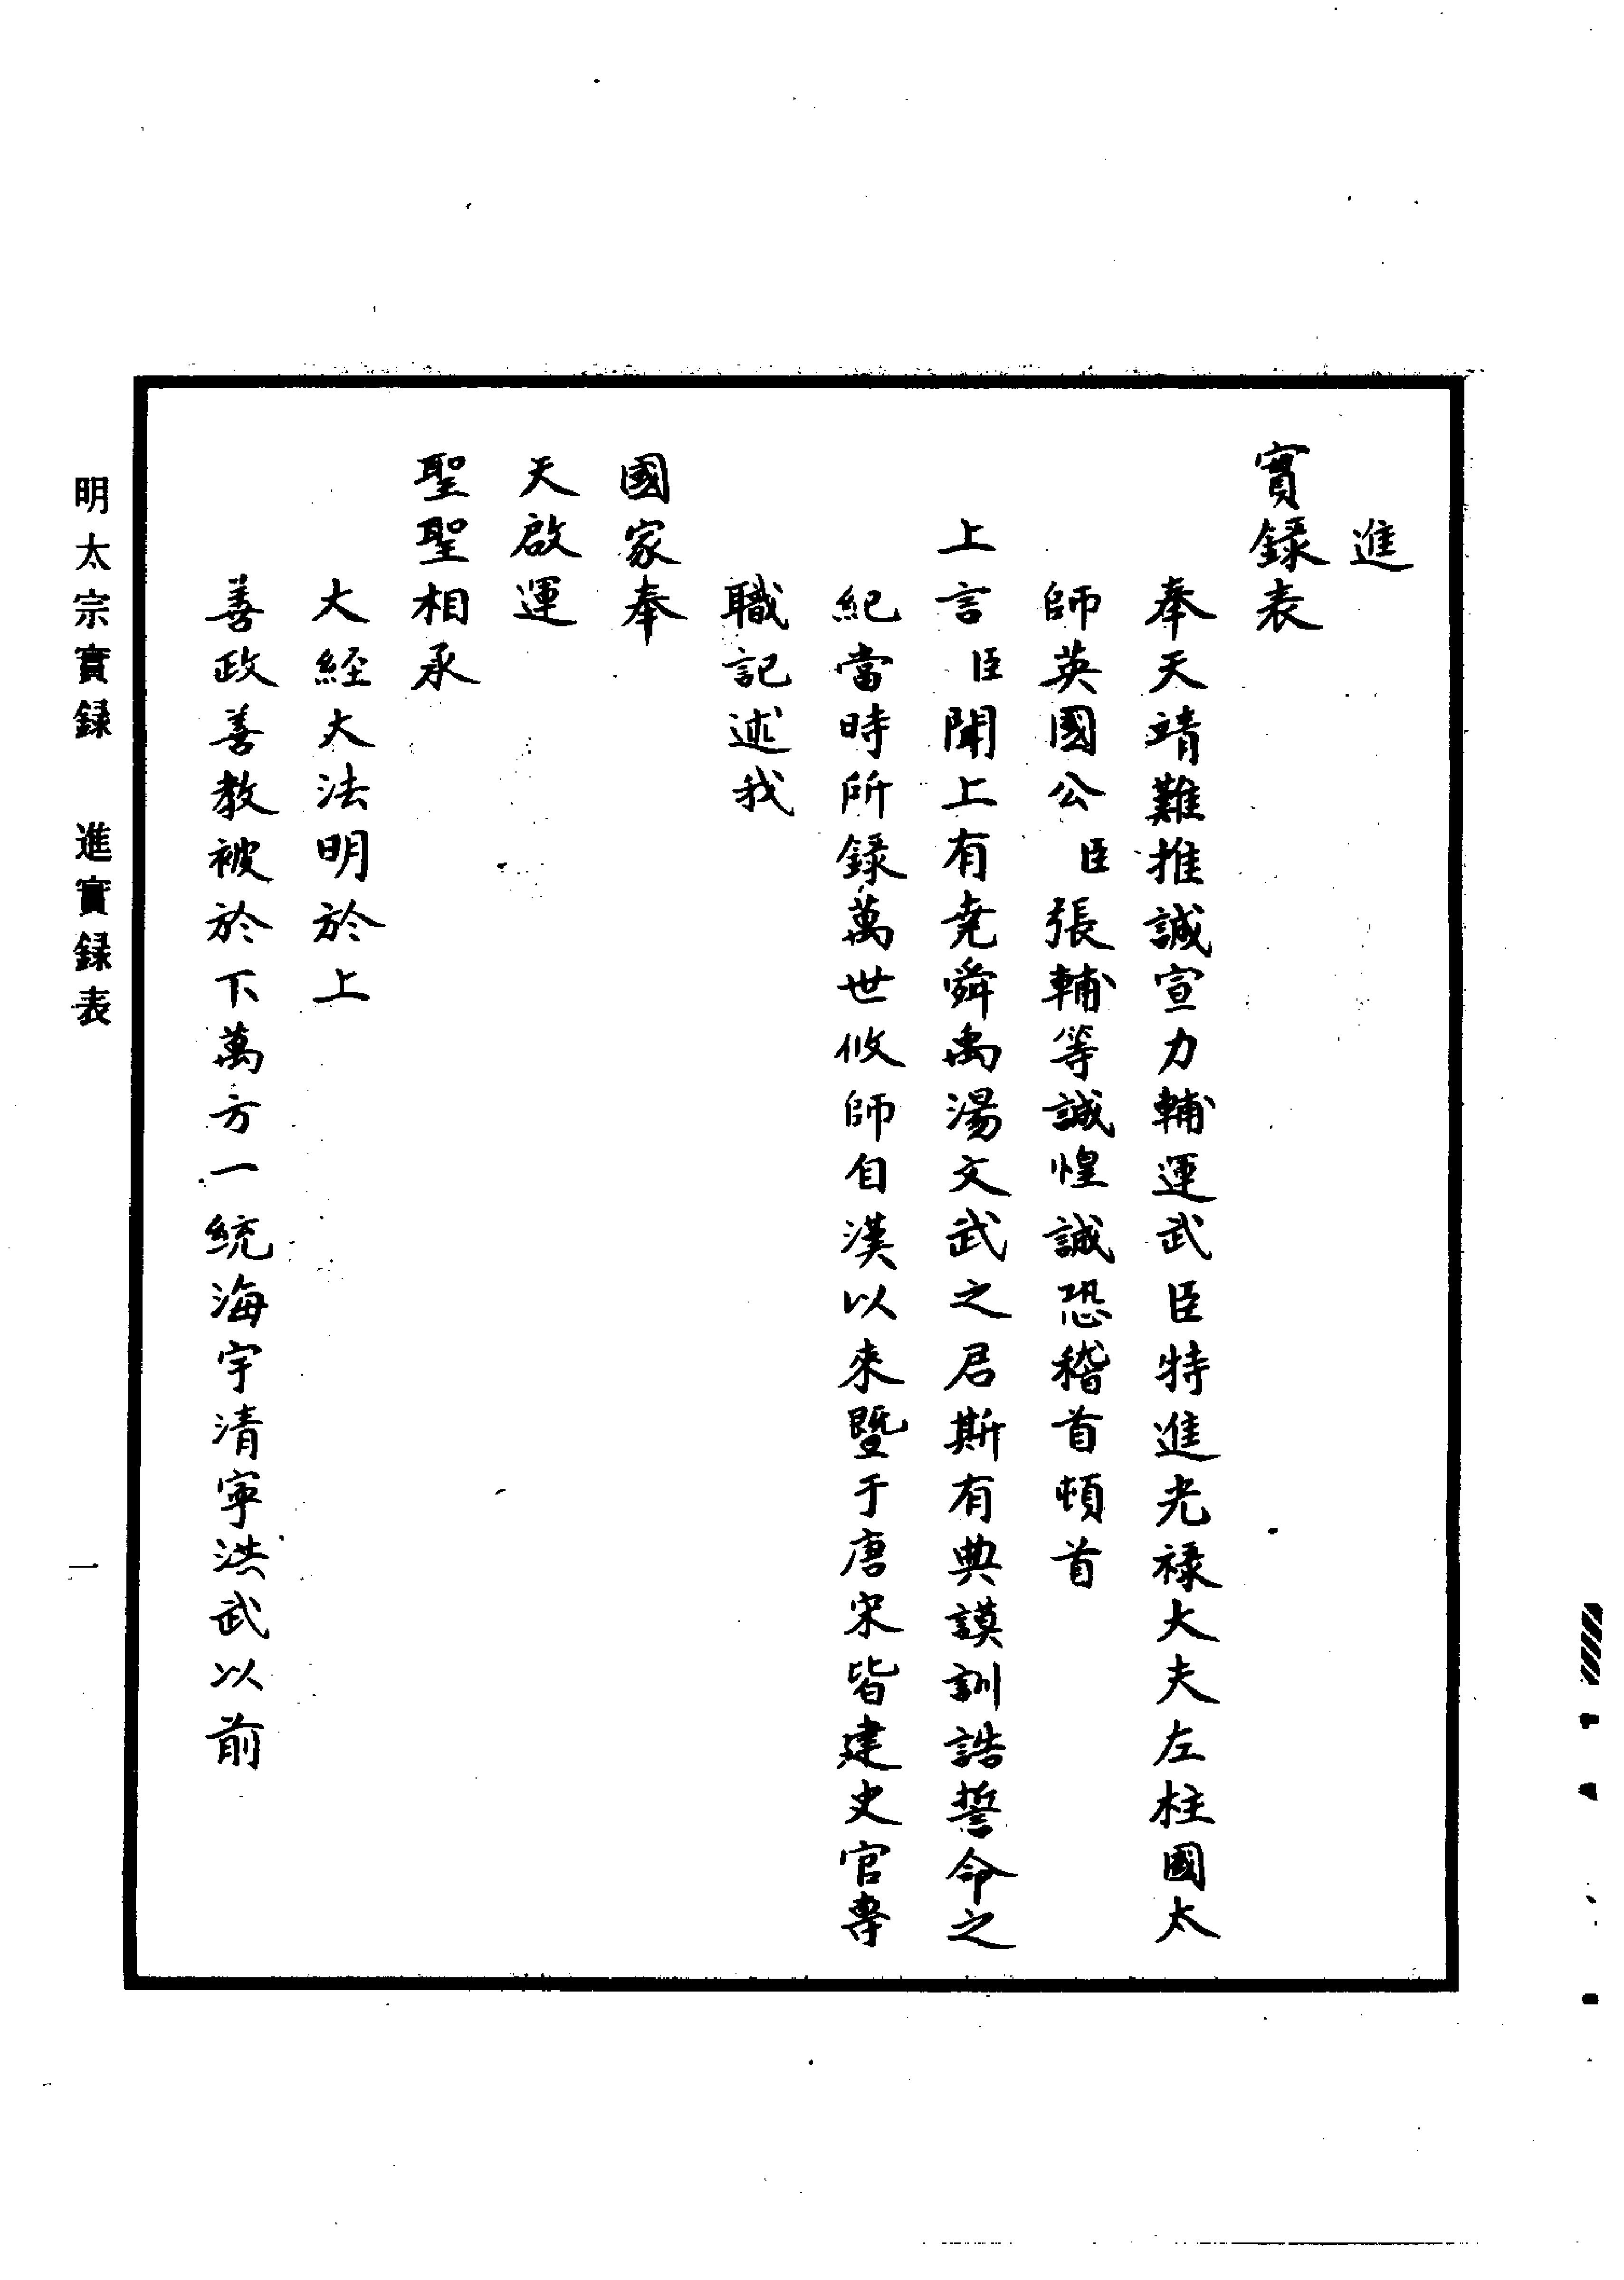 進
實録表
奉天靖難推誠宣力輔運武臣特進光禄大夫左柱國太
師英國公臣張輔等誠惶誠恐稽首頓首
上言臣聞上有堯舜禹湯文武之君斯有典謨訓誥誓命之
紀當時所録萬世攸師自漢以來暨于唐宋皆建史官專
職記述我
國家奉
天啟運
聖聖相承
大經大法明於上
善政善教被於下萬方一統海宇清寧洪武以前
明太宗實録 進實録表
一